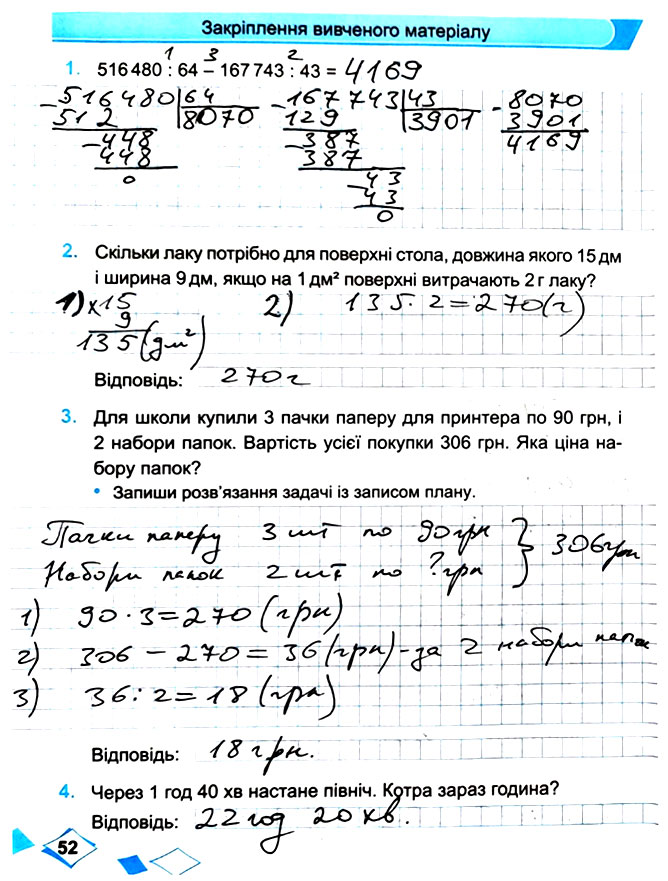 Закріплення вивченого матеріалу
1 3 2
1. 516 480 : 64 – 167 743 : 43 = 4169
- 516480 | 64 - 167743 | 43 - 8070
512 8070 129 3901 3901
- 448 - 387 4169
448 387
0 - 43
43
0
2. Скільки лаку потрібно для поверхні стола, довжина якого 15 дм
і ширина 9 дм, якщо на 1 дм² поверхні витрачають 2 г лаку?
1) x 15 2) 135 · 2 = 270 (г)
9
135 (дм²)
Відповідь: 270 г
3. Для школи купили 3 пачки паперу для принтера по 90 грн, і
2 набори папок. Вартість усієї покупки 306 грн. Яка ціна на-
бору папок?
• Запиши розв'язання задачі із записом плану.
Пачки паперу 3 шт по 90 грн } 306 грн
Набори папок 2 шт по ? грн
1) 90 · 3 = 270 (грн)
2) 306 – 270 = 36 (грн) - за 2 набори папок
3) 36 : 2 = 18 (грн)
Відповідь: 18 грн.
4. Через 1 год 40 хв настане північ. Котра зараз година?
Відповідь: 22 год 20 хв.
52